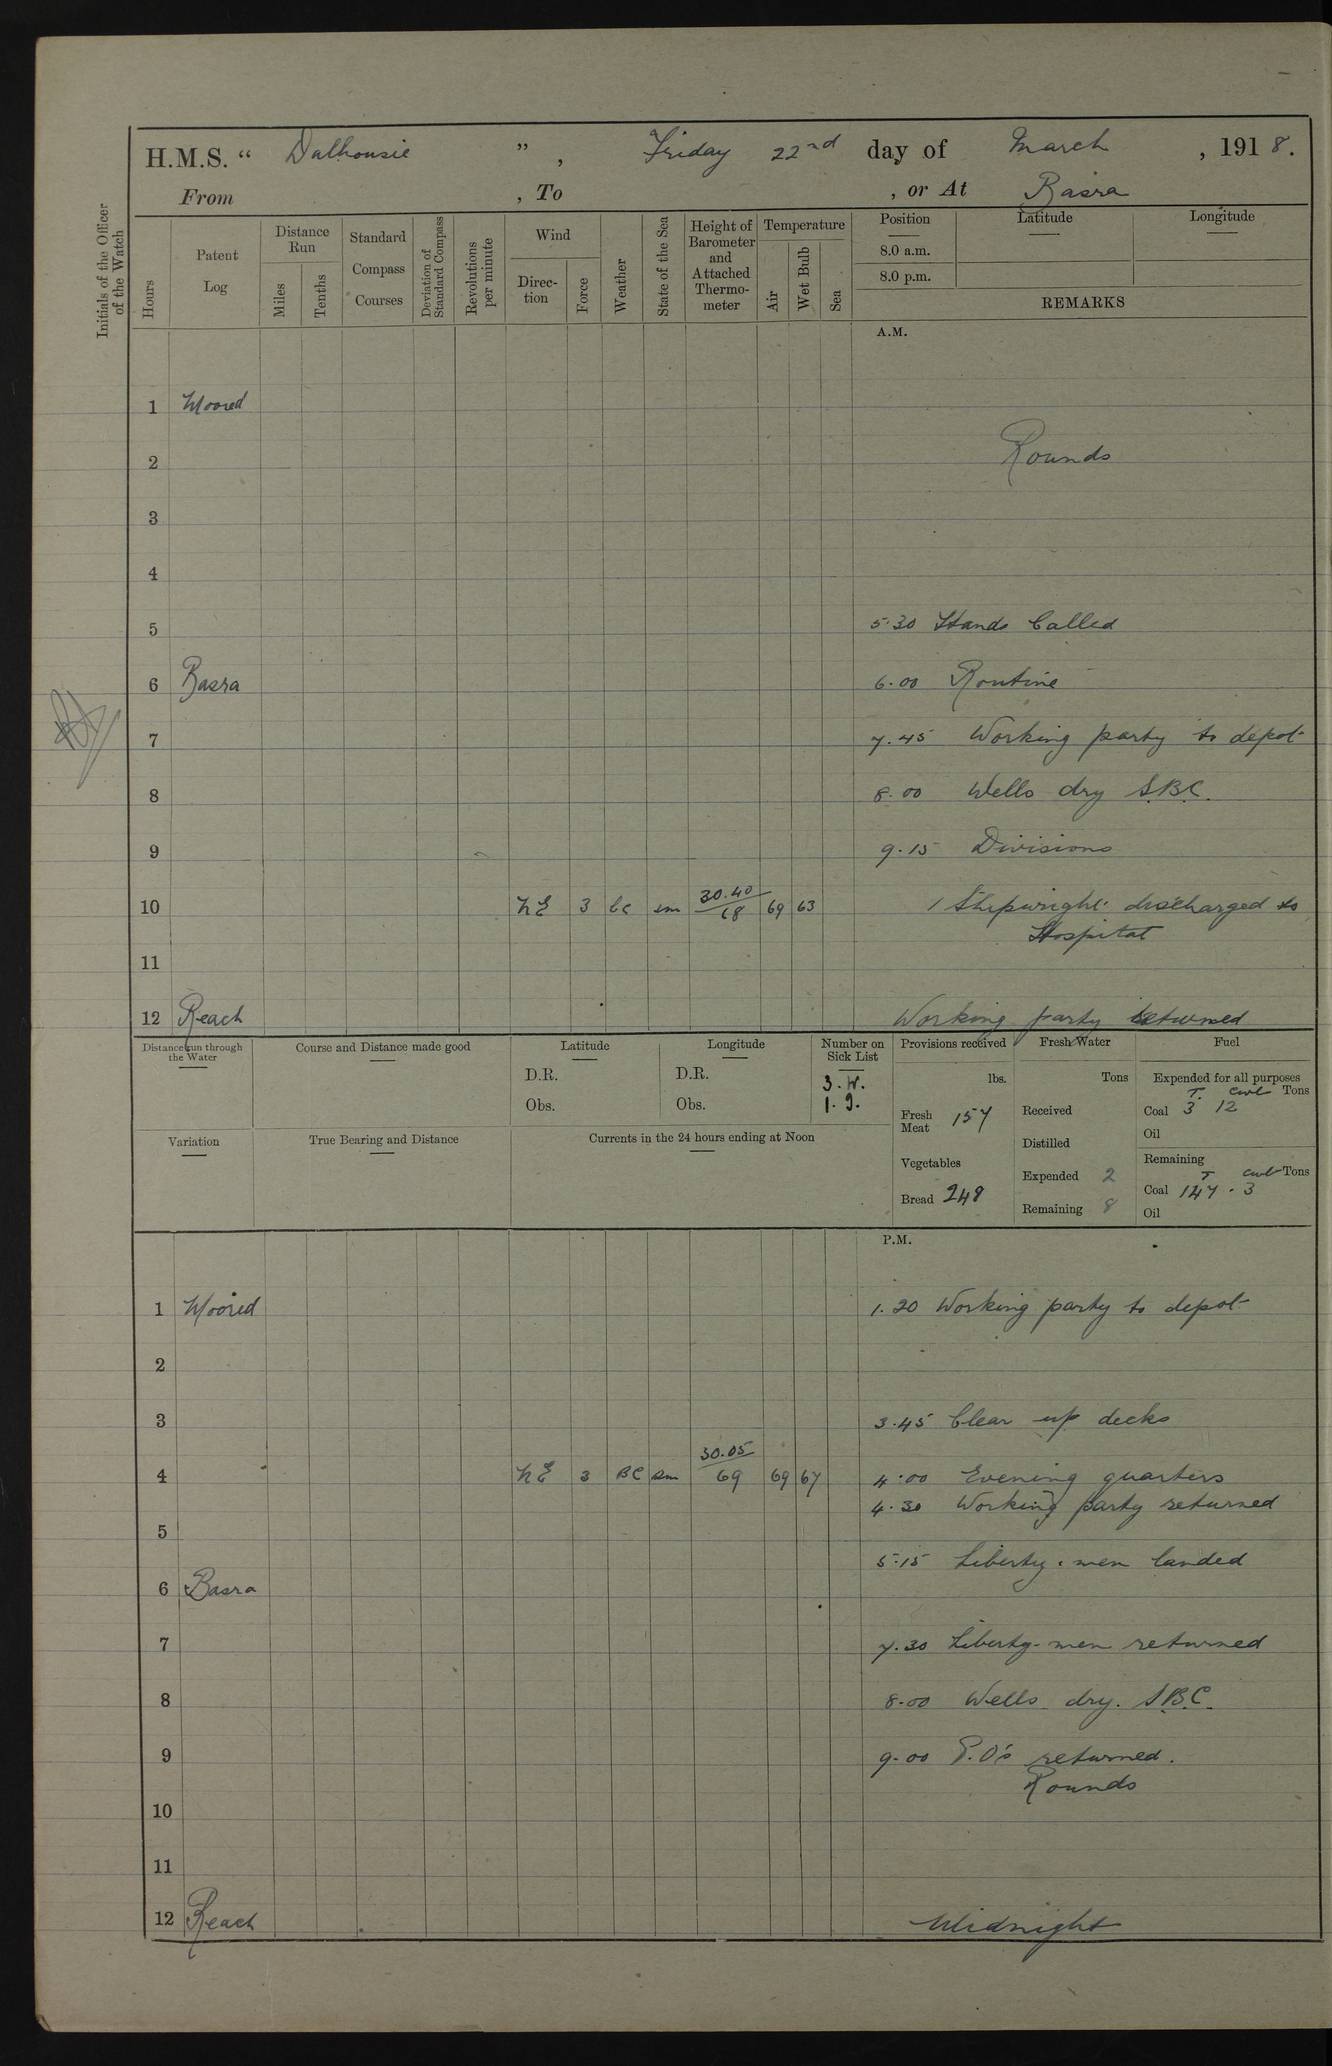 H.M.S. “ Dalhousie ” , Friday 22nd day of March , 1918.
From , To , or At Basra
Initials of the Officer of the Watch
Hours
Patent Log
Distance Run
Miles
Tenths
Standard Compass Courses
Deviation of Standard Compass
Revolutions per minute
Wind
Direction
Force
Weather
State of the Sea
Height of Barometer and Attached Thermometer
Temperature
Air
Wet Bulb
Sea
Position
8.0 a.m.
8.0 p.m.
Latitude
Longitude
REMARKS
A.M.
1 Moored
2 Rounds
3
4
5 5.30 Hands Called
6 Basra 6.00 Routine
7 7.45 Working party to depot
8 8.00 Wells dry S.B.C.
9 9.15 Divisions
10 NE 3 bc sm 30.40/68 69 63 1 Shipwright discharged to
Hospital
11
12 Reach Working party returned
Distance run through the Water
Course and Distance made good
Latitude
D.R.
Obs.
Longitude
D.R.
Obs.
Number on Sick List
3. W.
1. I.
Provisions received
lbs.
Fresh Meat 157
Vegetables
Bread 248
Fresh Water
Tons
Received
Distilled
Expended 2
Remaining 8
Fuel
Expended for all purposes
T. cwt Tons
Coal 3 12
Oil
Remaining
T cwt Tons
Coal 147 . 3
Oil
Variation
True Bearing and Distance
Currents in the 24 hours ending at Noon
P.M.
1 Moored 1.20 Working party to depot
2
3 3.45 Clear up decks
4 NE 3 BC sm 30.05/69 69 67 4.00 Evening quarters
4.30 Working party returned
5 5.15 Liberty men landed
6 Basra
7 7.30 Liberty-men returned
8 8.00 Wells dry. S.B.C.
9 9.00 P.O's returned.
Rounds
10
11
12 Reach Midnight